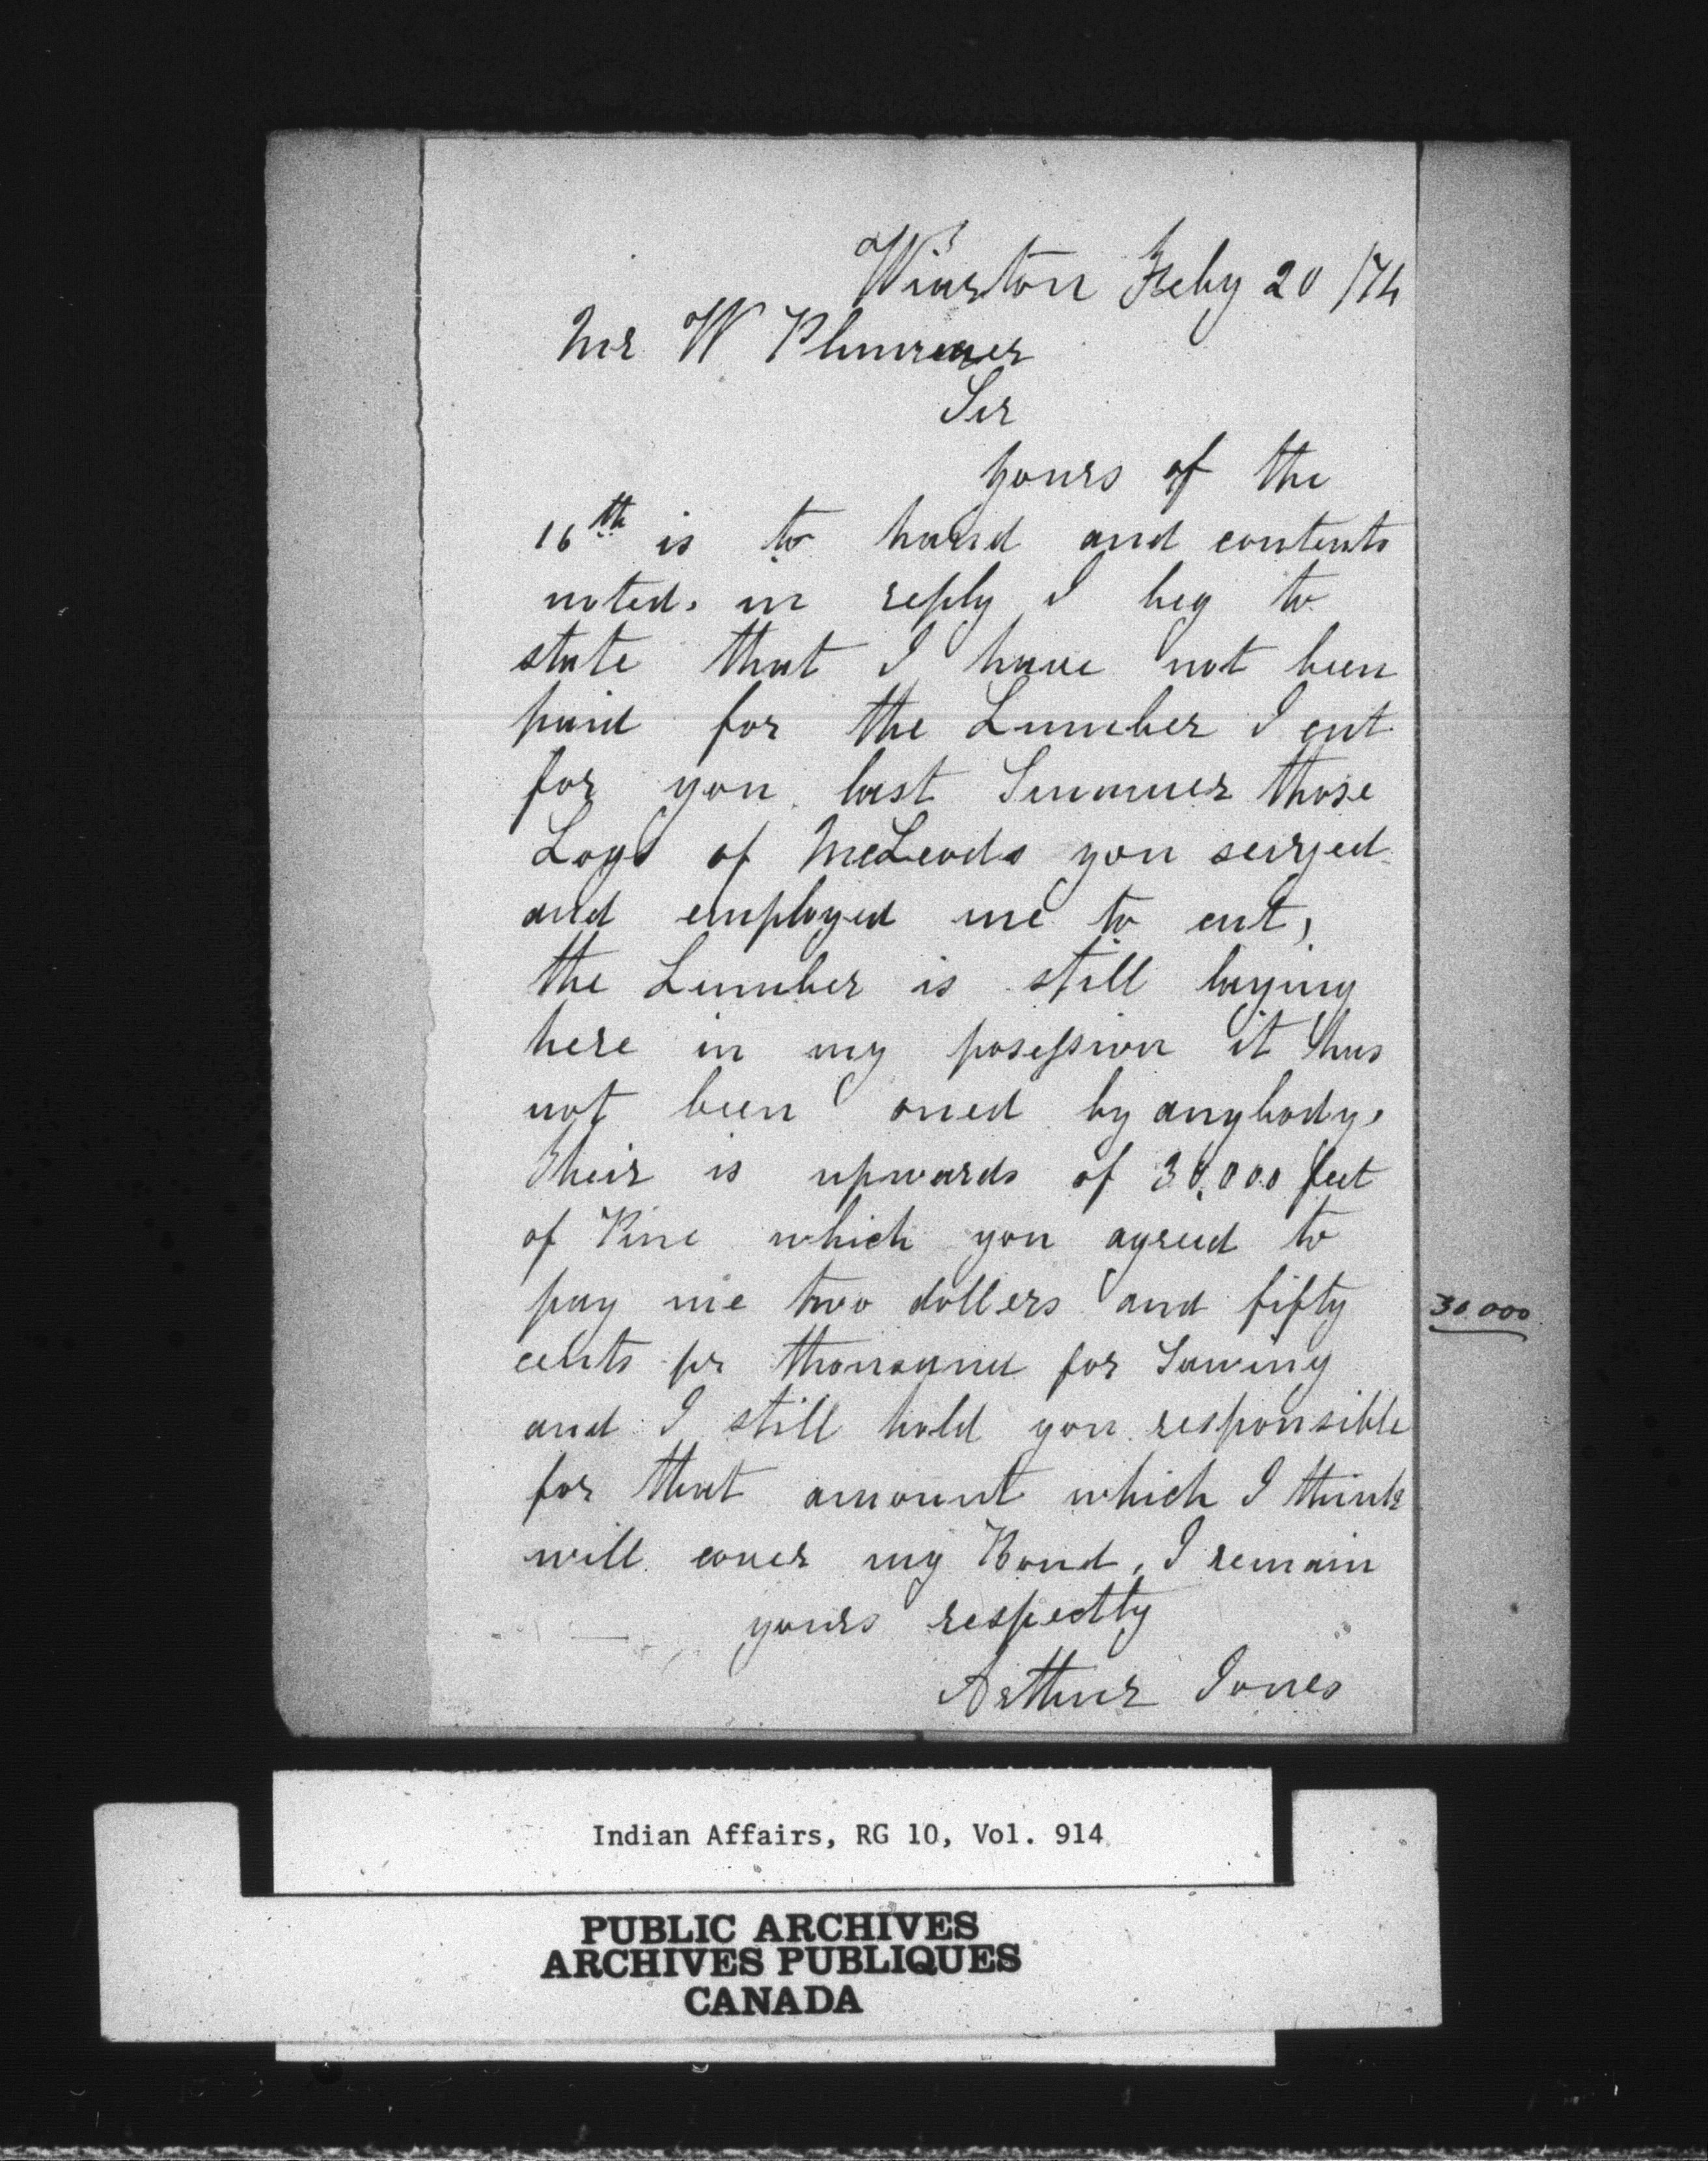 Wiarton Feby 20 /74
Mr W Plummer
Sir
yours of the
16th is to hand and contents
noted. in reply I beg to
state that I have not been
paid for the Lumber I cut
for you last Summer those
Logs of McLeods you seized
and employed me to cut,
the Lumber is still laying
here in my posession it has
not been oned by anybody.
Their is upwards of 30,000 feet
of Pine which you agreed to
pay me two dollers and fifty
30 000
cents pr thousand for Sawing
and I still hold you responsible
for that amount which I think
will cover my Bond, I remain
yours respectly
Arthur Jones
Indian Affairs, RG 10, Vol. 914
PUBLIC ARCHIVES
ARCHIVES PUBLIQUES
CANADA